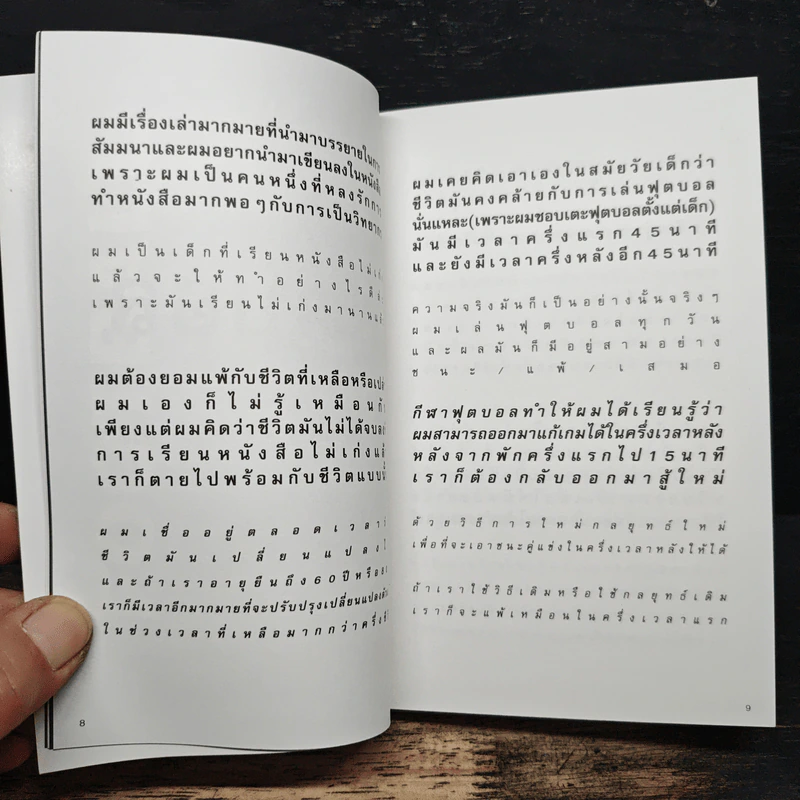 ผมมีเรื่องเล่ามากมายที่นำมาบรรยายในการ
สัมมนาและผมอยากนำมาเขียนลงในหนังสือ
เพราะผมเป็นคนหนึ่งที่หลงรักการ
ทำหนังสือมากพอๆกับการเป็นวิทยากร
ผมเป็นเด็กที่เรียนหนังสือไม่เก่ง
แล้วจะให้ทำอย่างไรดี
เพราะมันเรียนไม่เก่งมานานแล้ว
ผมต้องยอมแพ้กับชีวิตที่เหลือหรือเปล่า
ผมเองก็ไม่รู้เหมือนกัน
เพียงแต่ผมคิดว่าชีวิตมันไม่ได้จบลง
การเรียนหนังสือไม่เก่งแล้ว
เราก็ตายไปพร้อมกับชีวิตแบบนี้
ผมเชื่ออยู่ตลอดเวลาว่า
ชีวิตมันเปลี่ยนแปลงได้
และถ้าเราอายุยืนถึง60ปีหรือ
เราก็มีเวลาอีกมากมายที่จะปรับปรุงเปลี่ยนแปลง
ในช่วงเวลาที่เหลือมากกว่าครึ่งชีวิต
8
ผมเคยคิดเอาเองในสมัยวัยเด็กว่า
ชีวิตมันคงคล้ายกับการเล่นฟุตบอล
นั่นแหละ(เพราะผมชอบเตะฟุตบอลตั้งแต่เด็ก)
มันมีเวลาครึ่งแรก45นาที
และยังมีเวลาครึ่งหลังอีก45นาที
ความจริงมันก็เป็นอย่างนั้นจริงๆ
ผมเล่นฟุตบอลทุกวัน
และผลมันก็มีอยู่สามอย่าง
ชนะ/แพ้/เสมอ
กีฬาฟุตบอลทำให้ผมได้เรียนรู้ว่า
ผมสามารถออกมาแก้เกมได้ในครึ่งเวลาหลัง
หลังจากพักครึ่งแรกไป15นาที
เราก็ต้องกลับออกมาสู้ใหม่
ด้วยวิธีการใหม่กลยุทธ์ใหม่
เพื่อที่จะเอาชนะคู่แข่งในครึ่งเวลาหลังให้ได้
ถ้าเราใช้วิธีเดิมหรือใช้กลยุทธ์เดิม
เราก็จะแพ้เหมือนในครึ่งเวลาแรก
9